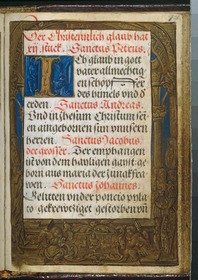 Der Christennlich glaub hat
xij stuck. Sanctus Petrus.
ICh glaub in gott
vater allmechtig
en schopffer
des himels und d
erden. Sanctus Andreas.
Und in Jhesum Christum sei
en aingebornen sun unnsern
herren. Sanctus Jacobus
der grosser. Der empfangen
ist von dem hayligen gayst ge
born aus maria der junckfra
wen. Sanctus Johannes.
Geliten under poncio pyla
to gekrewtziget gestorben un